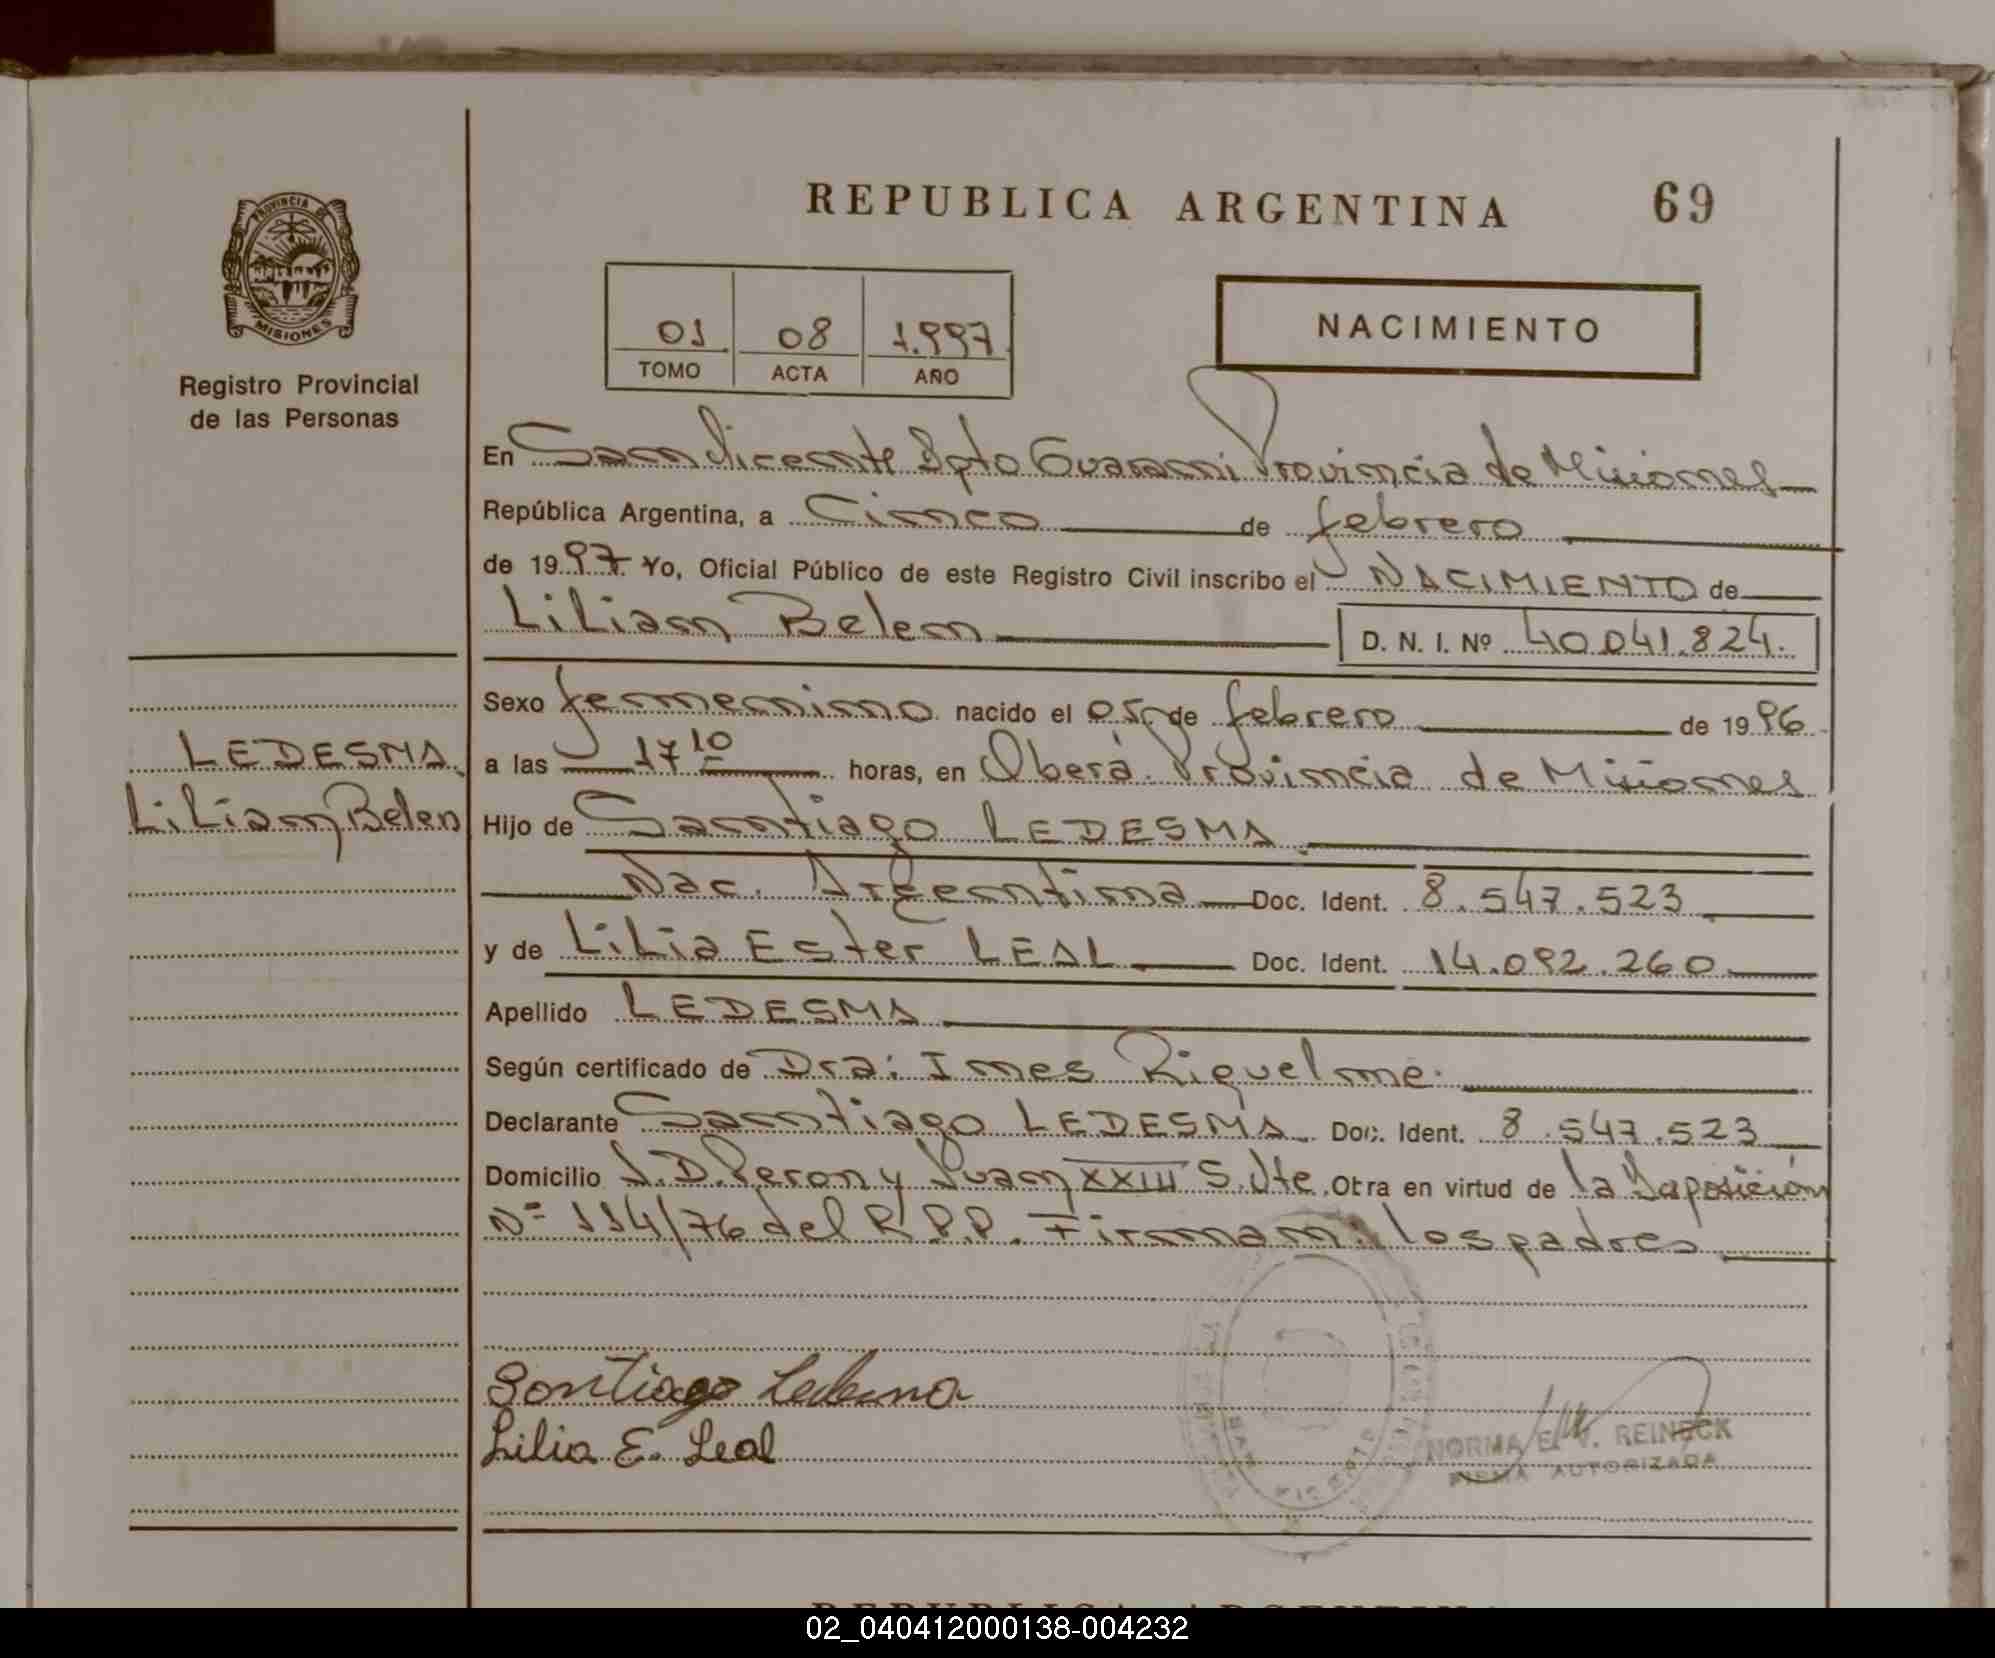 REPUBLICA ARGENTINA 69
PROVINCIA DE
MISIONES
Registro Provincial
de las Personas
01 08 1.997
TOMO ACTA AÑO
NACIMIENTO
En San Vicente Dpto Guarani Provincia de Misiones
República Argentina, a Cinco de febrero
de 1997. Yo, Oficial Público de este Registro Civil inscribo el NACIMIENTO de
Lilian Belen D. N. I. Nº 40.041.824.
Sexo femenino nacido el 05 de febrero de 1996.
LEDESMA
Lilian Belen
a las 17 10 horas, en Oberá. Provincia de Misiones
Hijo de Santiago LEDESMA
Nac. Argentina Doc. Ident. 8.547.523
y de Lilia Ester LEAL Doc. Ident. 14.092.260
Apellido LEDESMA
Según certificado de Dra: Ines Riquelme.
Declarante Santiago LEDESMA Doc. Ident. 8.547.523
Domicilio J.D. Peron y Juan XXIII S. Vte. Otra en virtud de la
Nº 114/76 del R.P.P. Firman: los padres
Santiago Ledesma
Lilia E. Leal
NORMA E. V. REINECK
FIRMA AUTORIZADA
02_040412000138-004232